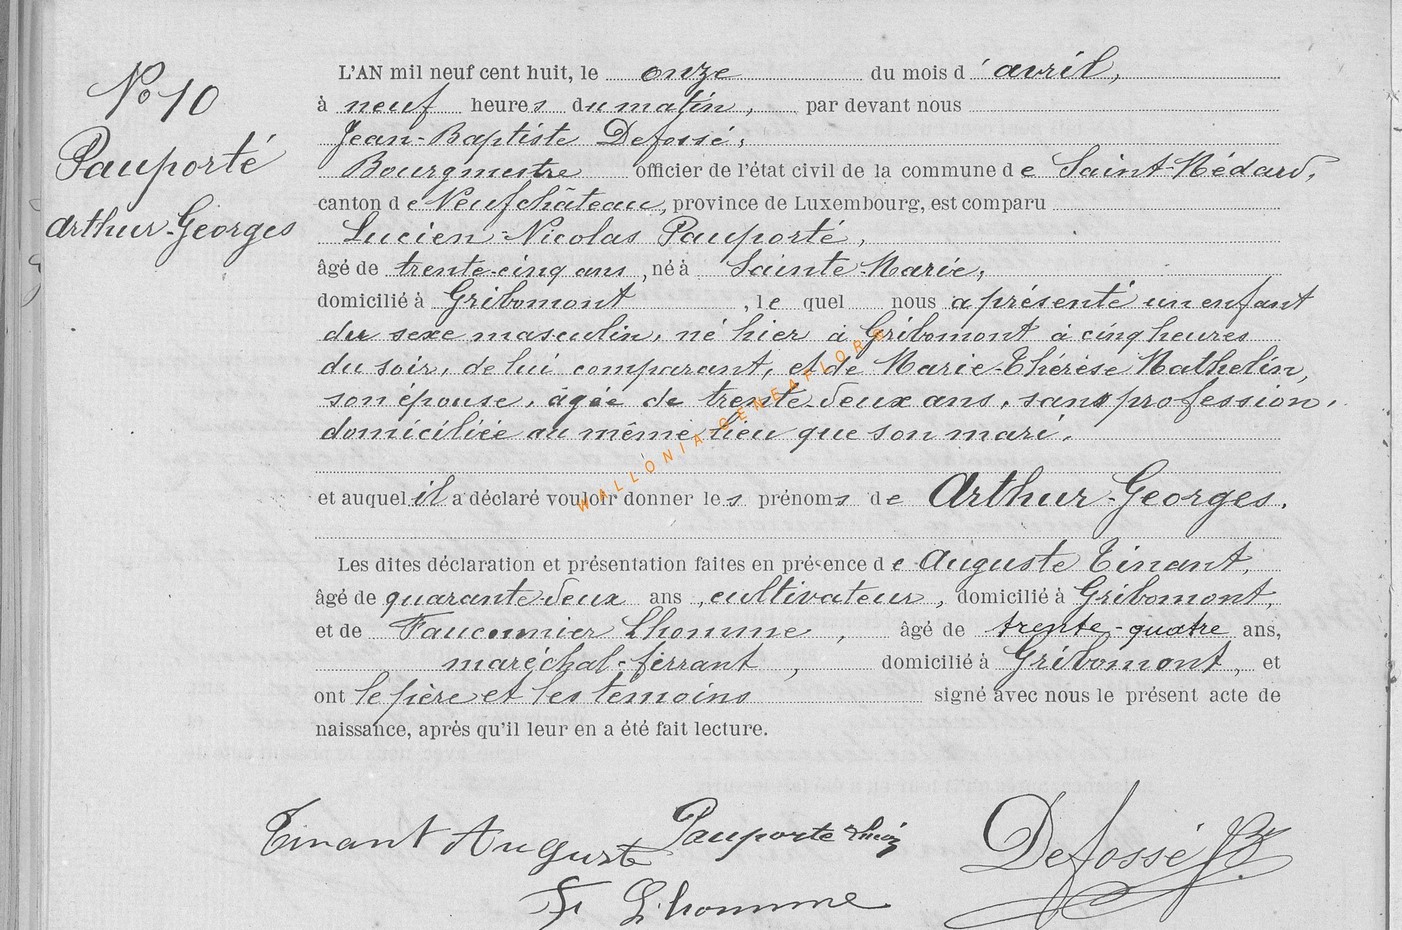 No 10
Pauporté
Arthur-Georges
L'AN mil neuf cent huit, le onze du mois d'avril,
à neuf heures du matin, par devant nous
Jean-Baptiste Defossé,
Bourgmestre officier de l'état civil de la commune de Saint-Médard,
canton de Neufchâteau, province de Luxembourg, est comparu
Lucien-Nicolas Pauporté,
âgé de trente-cinq ans, né à Sainte-Marie,
domicilié à Gribomont, le quel nous a présenté un enfant
du sexe masculin, né hier à Gribomont à cinq heures
du soir, de lui comparant, et de Marie-Thérèse Mathelin,
son épouse, âgée de trente-deux ans, sans profession,
domiciliée au même lieu que son mari.
et auquel il a déclaré vouloir donner les prénoms de Arthur-Georges.
Les dites déclaration et présentation faites en présence de Auguste Tinant,
âgé de quarante-deux ans, cultivateur, domicilié à Gribomont,
et de Fauconnier Lhomme, âgé de trente-quatre ans,
maréchal-ferrant, domicilié à Gribomont, et
ont le père et les témoins signé avec nous le présent acte de
naissance, après qu'il leur en a été fait lecture.
WALLONIA-GENEAFLORE
Tinant August Pauporte Defossé JB
F Lhomme